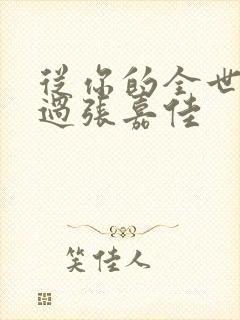 從你的全世
過張嘉佳
笑佳人